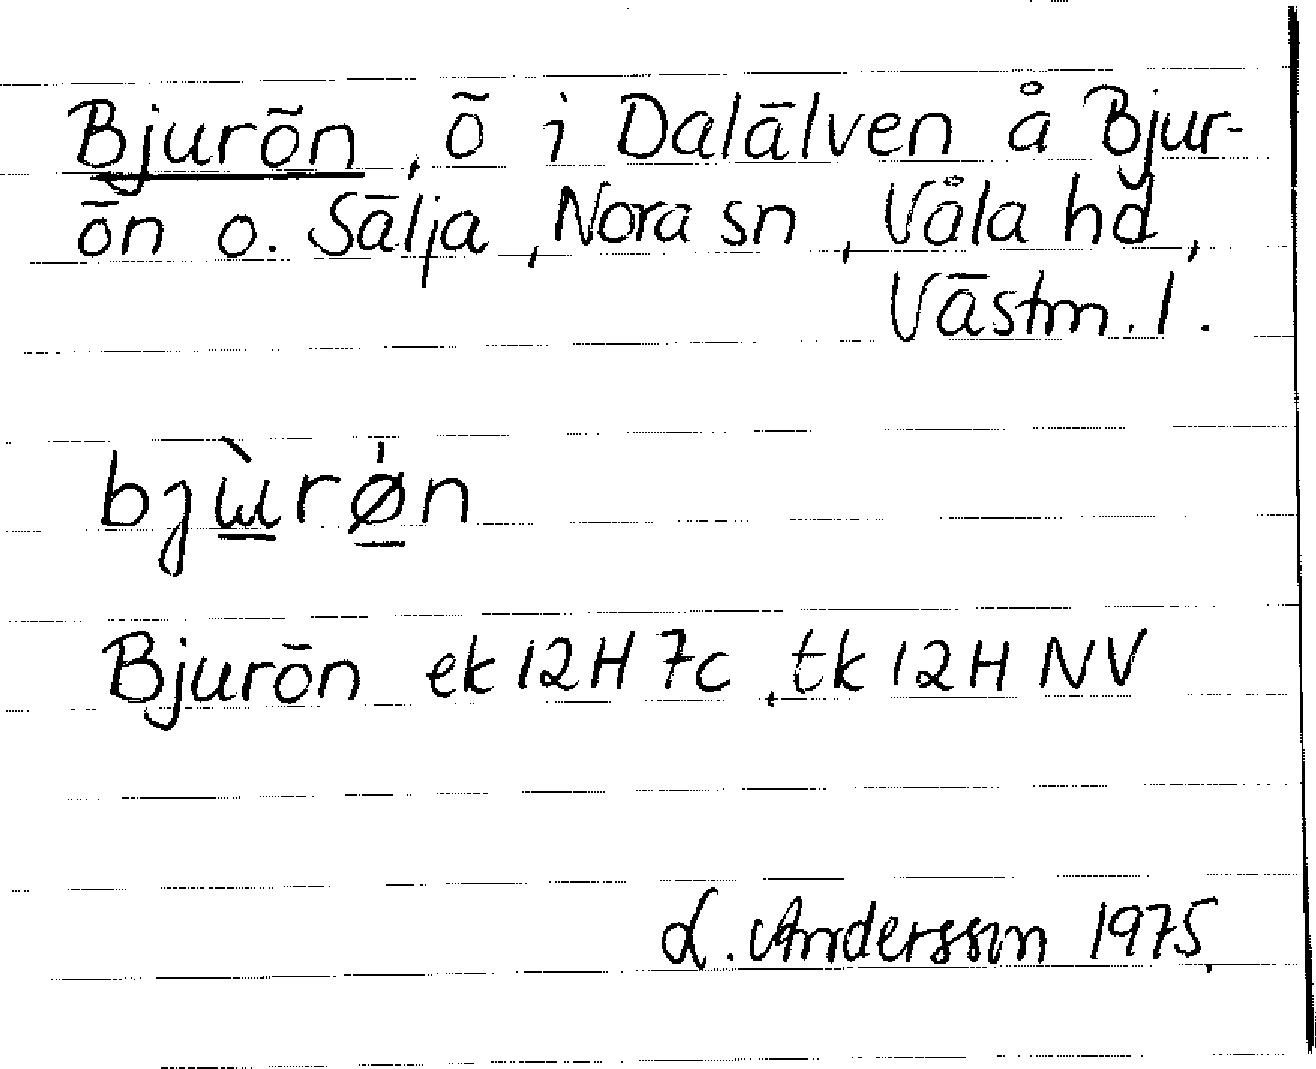 Bjurön, ö i Dalälven å Bjur-
ön o. Sälja, Nora sn, Våla hd,
Västm. l.
bjɯ̀rǿn
Bjurön ek 12H 7c, tk 12H NV
L. Andersson 1975.